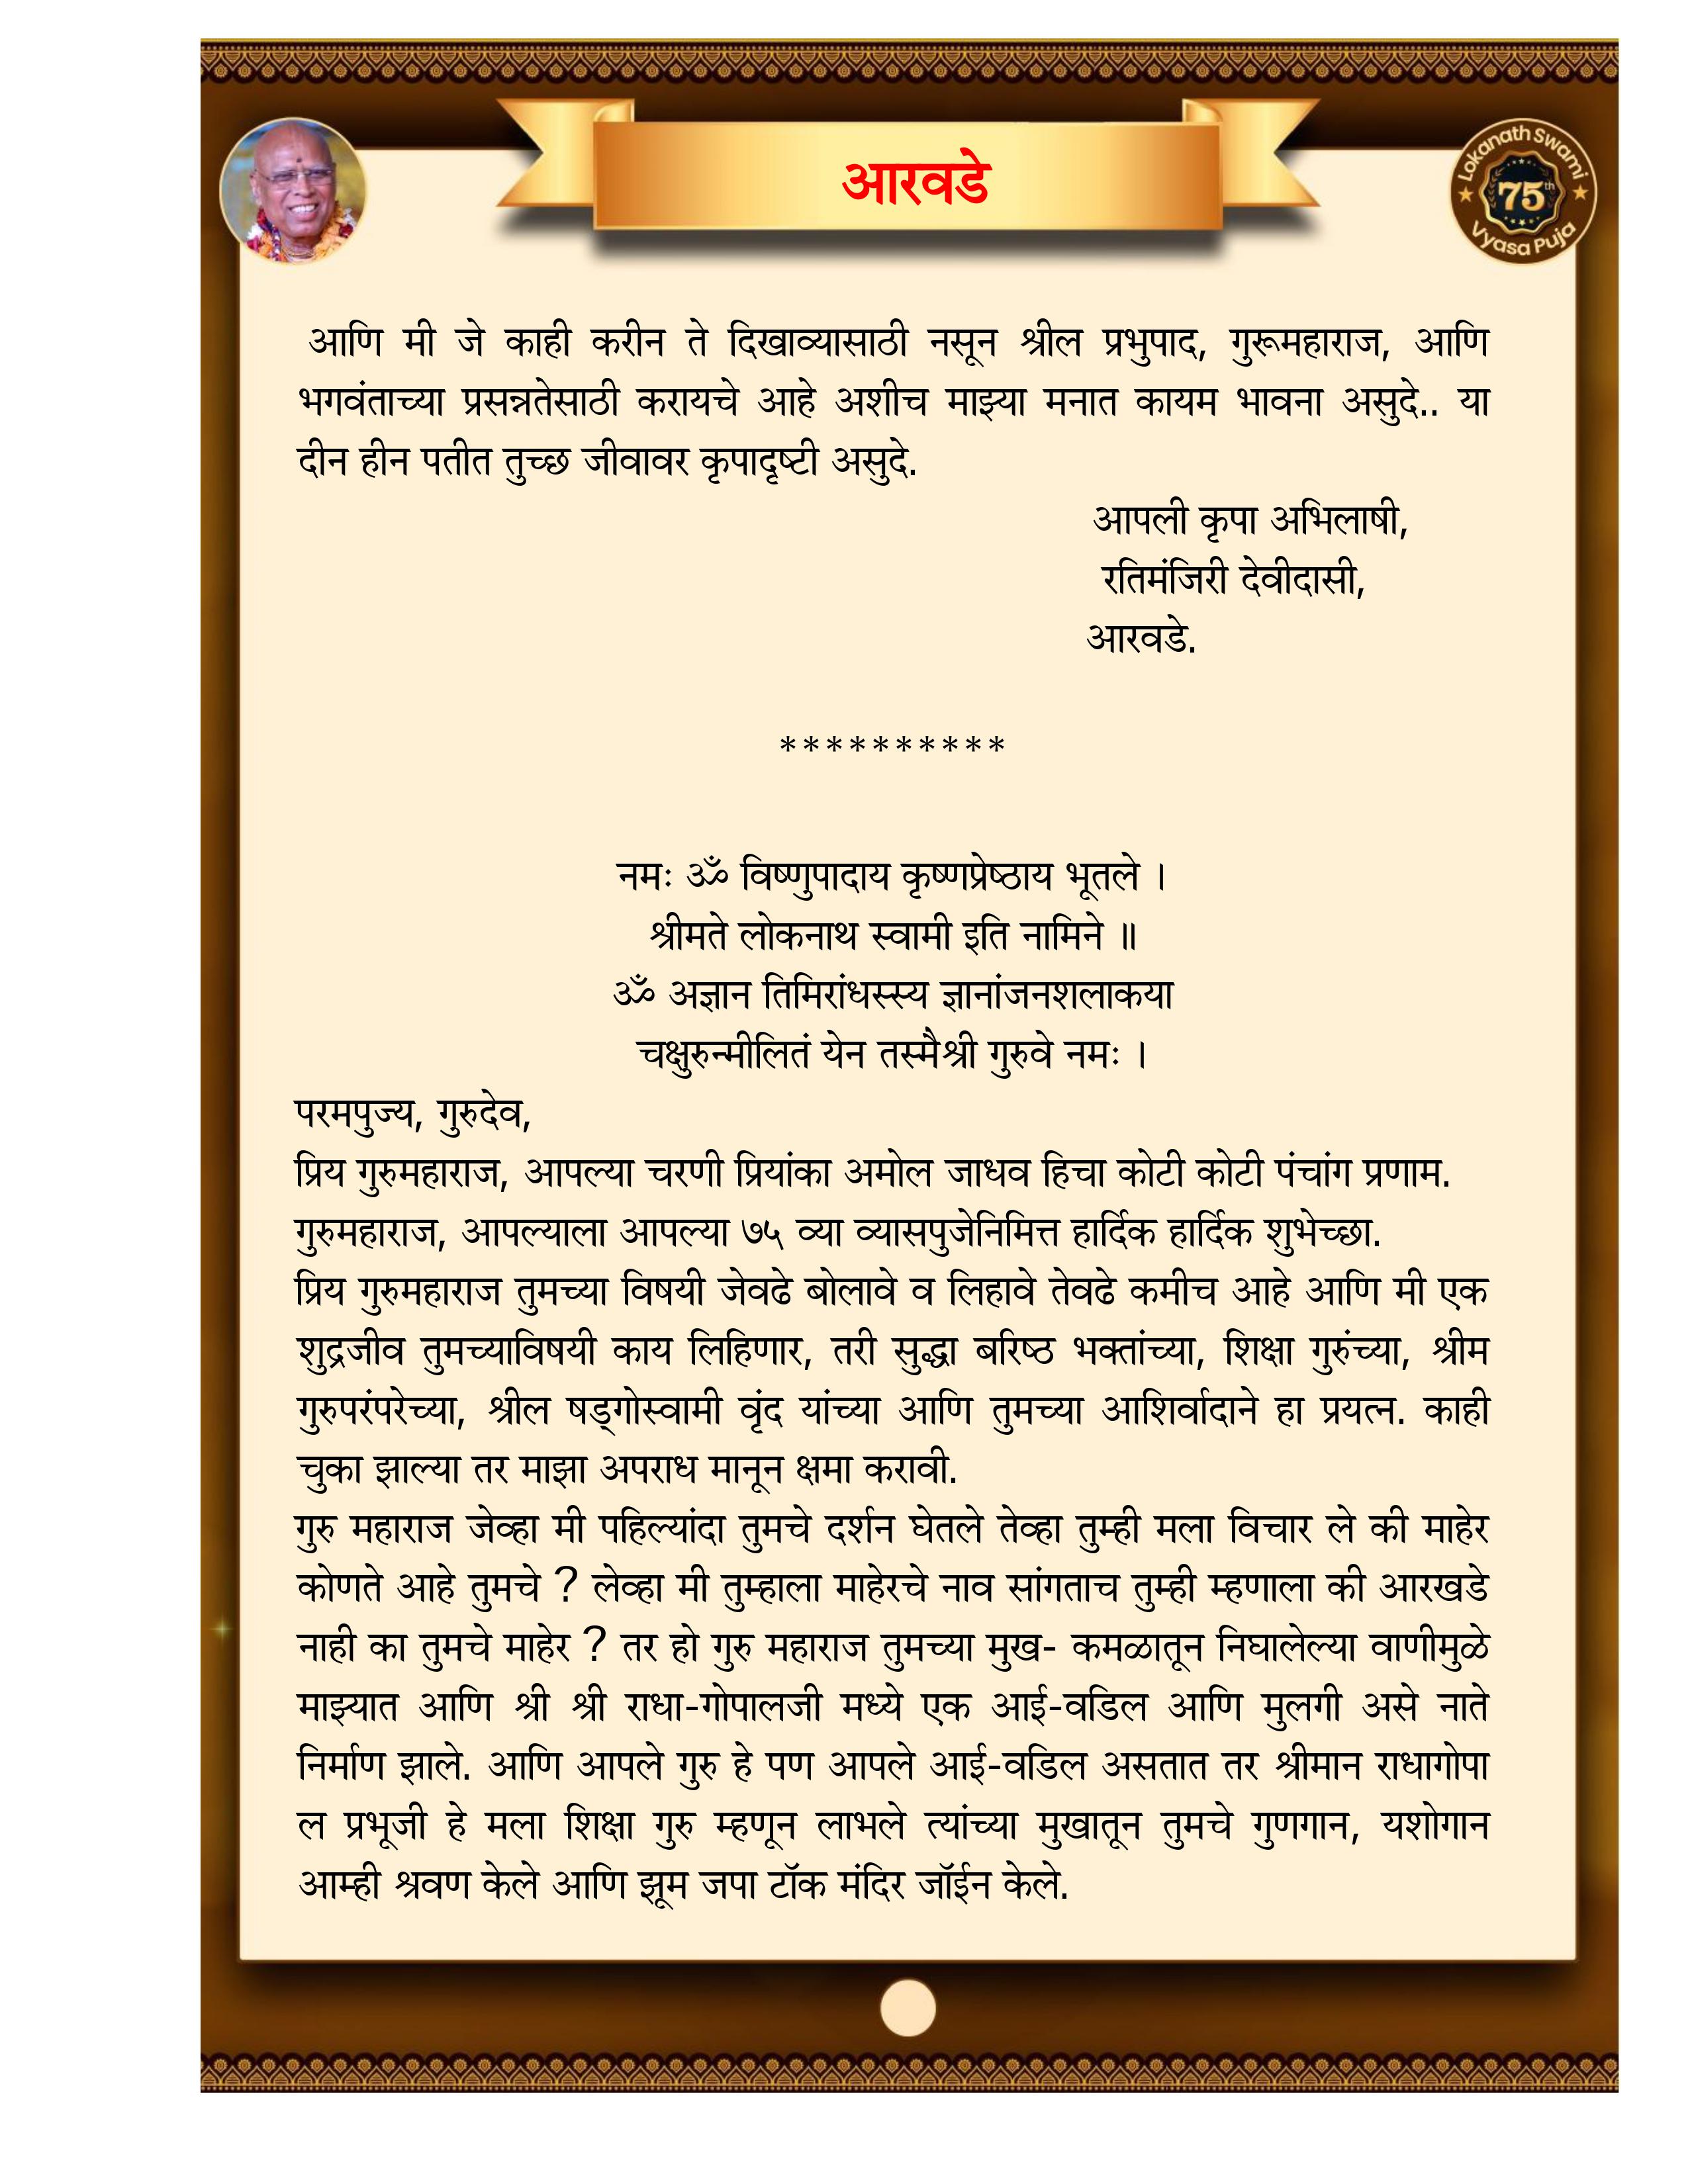 आरवडे
Lokanath Swami
75th
Vyasa Puja
आणि मी जे काही करीन ते दिखाव्यासाठी नसून श्रील प्रभुपाद, गुरूमहाराज, आणि
भगवंताच्या प्रसन्नतेसाठी करायचे आहे अशीच माझ्या मनात कायम भावना असुदे.. या
दीन हीन पतीत तुच्छ जीवावर कृपादृष्टी असुदे.
आपली कृपा अभिलाषी,
रतिमंजिरी देवीदासी,
आरवडे.
**********
नमः ॐ विष्णुपादाय कृष्णप्रेष्ठाय भूतले ।
श्रीमते लोकनाथ स्वामी इति नामिने ॥
ॐ अज्ञान तिमिरांधस्स्य ज्ञानांजनशलाकया
चक्षुरुन्मीलितं येन तस्मैश्री गुरुवे नमः ।
परमपुज्य, गुरुदेव,
प्रिय गुरुमहाराज, आपल्या चरणी प्रियांका अमोल जाधव हिचा कोटी कोटी पंचांग प्रणाम.
गुरुमहाराज, आपल्याला आपल्या ७५ व्या व्यासपुजेनिमित्त हार्दिक हार्दिक शुभेच्छा.
प्रिय गुरुमहाराज तुमच्या विषयी जेवढे बोलावे व लिहावे तेवढे कमीच आहे आणि मी एक
शुद्रजीव तुमच्याविषयी काय लिहिणार, तरी सुद्धा बरिष्ठ भक्तांच्या, शिक्षा गुरुंच्या, श्रीम
गुरुपरंपरेच्या, श्रील षड्गोस्वामी वृंद यांच्या आणि तुमच्या आशिर्वादाने हा प्रयत्न. काही
चुका झाल्या तर माझा अपराध मानून क्षमा करावी.
गुरु महाराज जेव्हा मी पहिल्यांदा तुमचे दर्शन घेतले तेव्हा तुम्ही मला विचार ले की माहेर
कोणते आहे तुमचे ? लेव्हा मी तुम्हाला माहेरचे नाव सांगताच तुम्ही म्हणाला की आरखडे
नाही का तुमचे माहेर ? तर हो गुरु महाराज तुमच्या मुख- कमळातून निघालेल्या वाणीमुळे
माझ्यात आणि श्री श्री राधा-गोपालजी मध्ये एक आई-वडिल आणि मुलगी असे नाते
निर्माण झाले. आणि आपले गुरु हे पण आपले आई-वडिल असतात तर श्रीमान राधागोपा
ल प्रभूजी हे मला शिक्षा गुरु म्हणून लाभले त्यांच्या मुखातून तुमचे गुणगान, यशोगान
आम्ही श्रवण केले आणि झूम जपा टॉक मंदिर जॉईन केले.